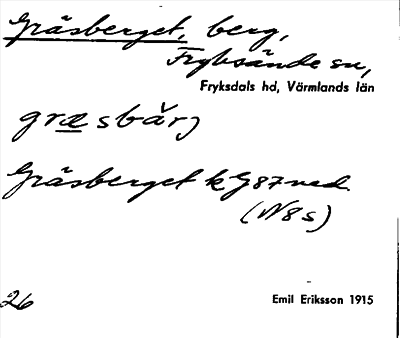 Gräsberget, berg,
Fryksände sn,
Fryksdals hd, Värmlands län
græsbărj
Gräsberget k G87 ned.
(N8s)
26
Emil Eriksson 1915